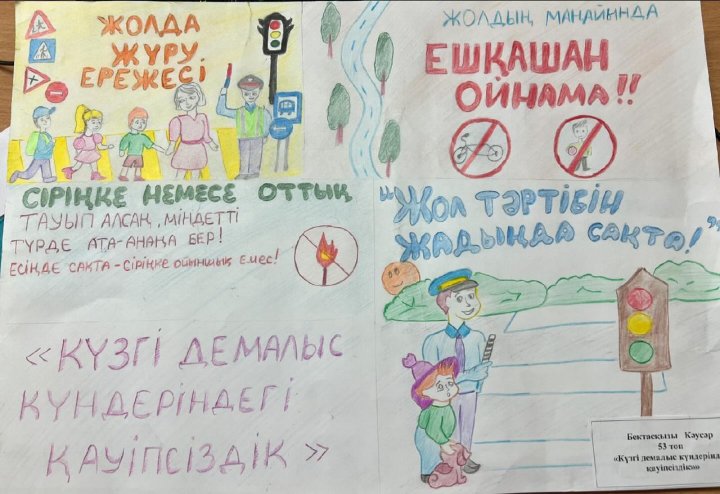 ЖОЛДА
ЖҮРУ
ЕРЕЖЕСІ
ЖОЛДЫҢ МАҢАЙЫНДА
ЕШҚАШАН
ОЙНАМА!!
СІРІҢКЕ НЕМЕСЕ ОТТЫҚ
ТАУЫП АЛСАҢ, МІНДЕТТІ
ТҮРДЕ АТА-АНАҢА БЕР!
ЕСІҢДЕ САҚТА - СІРІҢКЕ ОЙЫНШЫҚ ЕМЕС!
"ЖОЛ ТӘРТІБІН
ЖАДЫҢДА САҚТА!"
«КҮЗГІ ДЕМАЛЫС
КҮНДЕРІНДЕГІ
ҚАУІПСІЗДІК»
Бектасқызы Каусар
53 топ
«Күзгі демалыс күндерінд
қауіпсіздік»